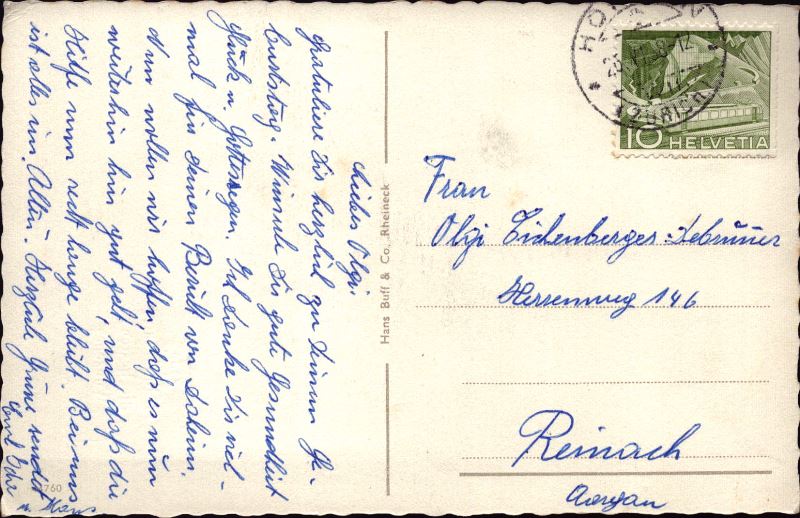 Liebes Olgi.
Gratuliere Dir herzlich zu Deinem Ge-
burtstag. Wünsche Dir gute Gesundheit
Glück u. Gottessegen. Ich danke Dir viel-
mal für deinen Bericht von daheim.
Nun wollen wir hoffen, dass es nun
weiterhin gut geht, und dass die
Hilfe nun recht lange bleibt. Bei uns
ist alles im Alten. Herzliche Grüsse sendet
Hans Buff & Co., Rheineck
760
HELVETIA
10
ZÜRICH
Frau
Olgi Eichenberger-Lebrunner
Herrenweg 146
Reinach
Aargau